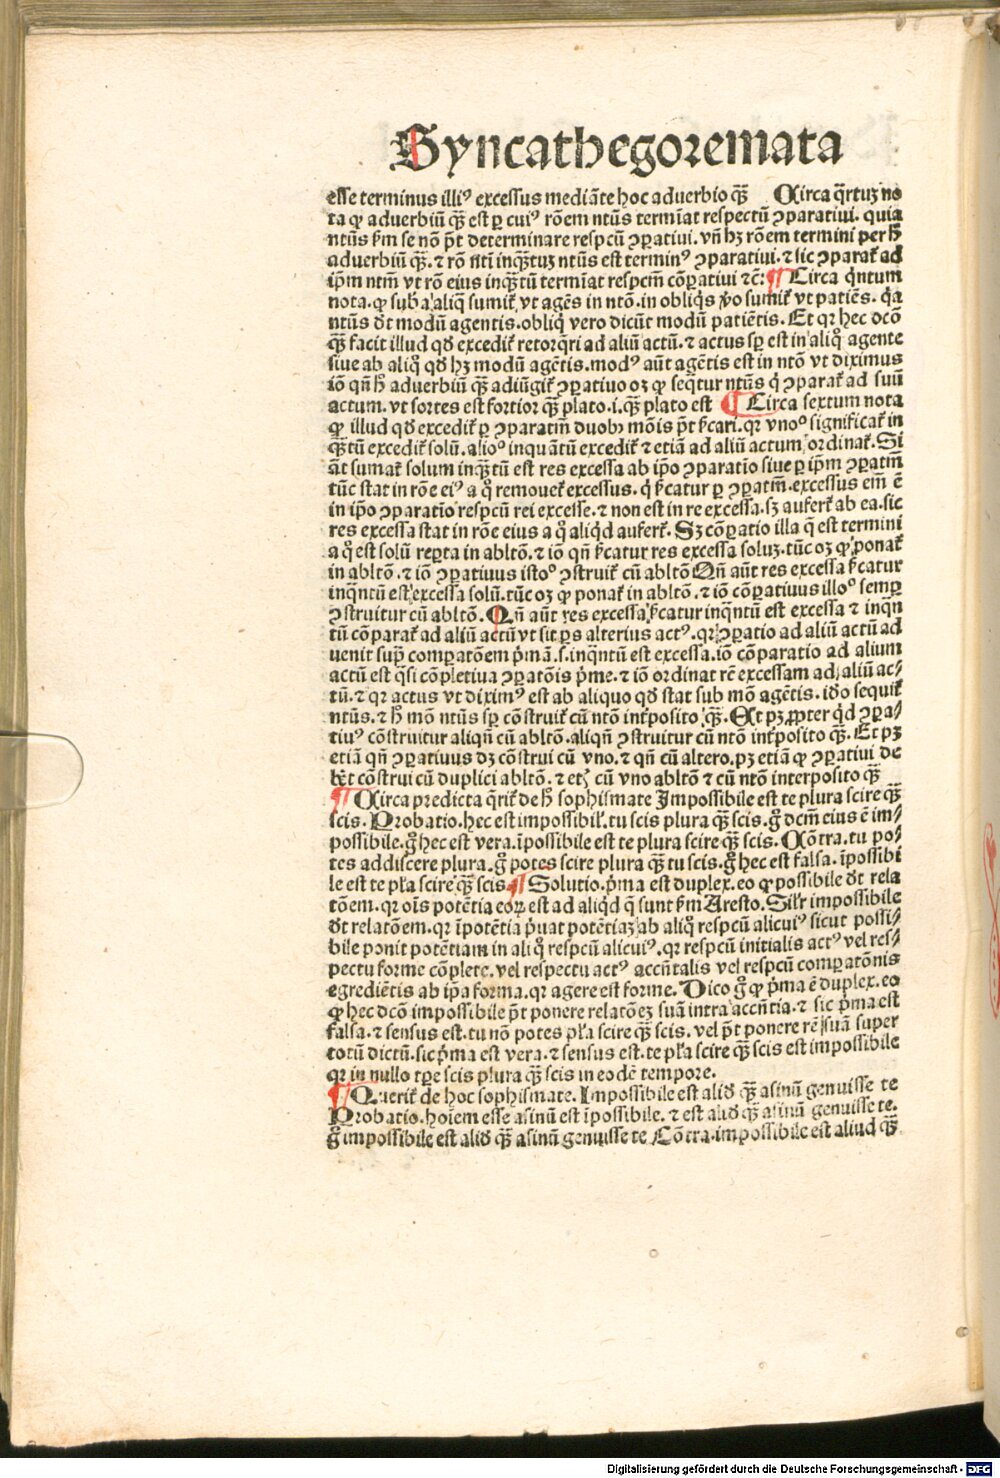 Syncathegoremata
esse terminus illiꝰ excessus mediāte hoc adverbio qȝ̄ Circa q̄rtuȝ no
ta ꝙ adverbiū qȝ̄ est ꝑ cuiꝰ rōem ntūs termīat respectū ꝯparatiui. quia
ntūs ẜm se nō p̄t determinare respcū ꝯꝑatiui. vn̄ hȝ rōem termini per h̄
adverbiū qȝ̄. ⁊ rō inqȝ̄tuȝ ntūs est terminꝰ ꝯparatiui. ⁊ sic ꝯparat̄ ad
ip̄m ntm̄ vt rō eius inqȝ̄tū termīat respcm̄ cōꝑatiui ⁊c̄: ¶ Circa q̇ntum
nota. ꝙ sub̄a aliq̄n sumit̄ vt agēs in ntō. in obliq̇s ꝟo sumit̄ vt patiēs. q̇a
ntūs dt̄ modū agentis. obliq̇ vero dicūt modū patiētis. Et qꝛ hec dcō
qȝ̄ facit illud qd̄ excedit̄ retorq̄ri ad aliū actū. ⁊ actus sꝑ est in aliq̊ agente
siue ab aliq̊ qd̄ hȝ modū agētis. modꝰ aūt agētis est in ntō vt diximus
iō qn̄ h̄ adverbiū qȝ̄ adiūgit̄ ꝯꝑatiuo oȝ ꝙ seq̄tur ntūs q̇ ꝯparat̄ ad suū
actum. vt sortes est fortior qȝ̄ plato .i. qȝ̄ plato est ¶ Circa sextum nota
ꝙ illud qd̄ excedit̄ ꝑ ꝯparatm̄ duobȝ mōis p̄t ẜcari. qꝛ vnoº significat̄ in
qȝ̄tū excedit̄ solū. alioº inquātū excedit̄ ⁊ etiā ad aliū actum ordinat̄. Si
āt sumat̄ solum inqȝ̄tū est res excessa ab ip̄o ꝯparatio siue ꝑ ip̄m ꝯꝑatm̄
tūc stat in rōe eiꝰ a q̊ remouet̄ excessus. q̇ ẜcatur ꝑ ꝯꝑatm̄. excessus em̄ ē
in ip̄o ꝯparatio respcū rei excesse. ⁊ non est in re excessa. sȝ aufert̄ ab ea. sic
res excessa stat in rōe eius a q̊ aliq̇d aufert̄. Sȝ cōꝑatio illa q̄ est termini
a q̊ est solū reꝑta in abltō. ⁊ iō qn̄ ẜcatur res excessa soluȝ. tūc oȝ ꝙ ponat̄
in abltō. ⁊ iō ꝯꝑatiuus istoº ꝯstruit̄ cū abltō Qn̄ aūt res excessa ẜcatur
inq̄ntū est excessa solū. tūc oȝ ꝙ ponat̄ in abltō. ⁊ iō cōꝑatiuus illoº semꝑ
ꝯstruitur cū abltō. Qn̄ aūt res excessa ẜcatur inq̄ntū est excessa ⁊ inq̄n
tū cōparat̄ ad aliū actū vt sit ꝑs alterius actꝰ. qꝛ ꝯꝑatio ad aliū actū ad
uenit supͣ comꝑatōem p̄mā .s. inq̄ntū est excessa. iō cōparatio ad alium
actū est q̄si cōpletiua ꝯꝑatōis p̄me. ⁊ iō ordinat rē excessam ad aliū ac⸗
tū. ⁊ qꝛ actus vt diximꝰ est ab aliquo qd̄ stat sub mō agētis. id̊o sequit̄
ntūs. ⁊ h̄ mō ntūs sꝑ cōstruit̄ cū ntō int̄posito qȝ̄. Et pȝ ꝓpter q̇d ꝯꝑa⸗
tiuꝰ cōstruitur aliqn̄ cū abltō. aliqn̄ ꝯstruitur cū ntō int̄posito qȝ̄. Et pȝ
etiā qn̄ ꝯꝑatiuus dȝ cōstrui cū vno. ⁊ qn̄ cū altero. pȝ etiā ꝙ ꝯꝑatiui de
bēt cōstrui cū duplici abltō. ⁊ etȝ cū vno abltō ⁊ cū ntō interposito qȝ̄
¶ Circa predicta q̄rit̄ de h̄ sophismate Impossibile est te plura scire qȝ̄
scis. Probatio. hec est impossibil'. tu scis plura qȝ̄ scis. g̊ dcm̄ eius ē im⸗
possibile. g̊ hec est vera. īpossibile est te plura scire qȝ̄ scis. Cōtra. tu po⸗
tes addiscere plura. g̊ potes scire plura qȝ̄ tu scis. g̊ hec est falsa. īpossibi
le est te pl'a scire qȝ̄ scis ¶ Solutio. p̄ma est duplex. eo ꝙ possibile dt̄ rela
tōem. qꝛ oīs potētia eoꝝ est ad aliq̇d q̄ sunt ẜm Aresto. Sil'r impossibile
dt̄ relatōem. qꝛ īpotētia p̄uat potētiaȝ ab aliq̊ respcū alicuiꝰ sicut possi⸗
bile ponit potētiam in aliq̊ respcū alicuiꝰ. qꝛ respcū initialis actꝰ vel res⸗
pectu forme cōplete. vel respectu actꝰ accn̄talis vel respcū comꝑatōnis
egrediētis ab ip̄a forma. qꝛ agere est forme. Dico g̊ ꝙ p̄ma ē duplex. eo
ꝙ hec dcō impossibile p̄t ponere relatōeȝ suā intra accn̄tia. ⁊ sic p̄ma est
falsa. ⁊ sensus est. tu nō potes pl'a scire qȝ̄ scis. vel p̄t ponere rē suā super
totū dictū. sic p̄ma est vera. ⁊ sensus est. te pl'a scire qȝ̄ scis est impossibile
qꝛ in nullo tꝑe scis plura qȝ̄ scis in eodē tempore.
¶ Querit̄ de hoc sophismate. Impossibile est alid̄ qȝ̄ asinū genuisse te
Probatio. hoīem esse asinū est īpossibile. ⁊ est alid̄ qȝ̄ asinū genuisse te.
g̊ impossibile est alid̄ qȝ̄ asinū genuisse te Cōtra. impossibile est aliud qȝ̄
Digitalisierung gefördert durch die Deutsche Forschungsgemeinschaft - DFG